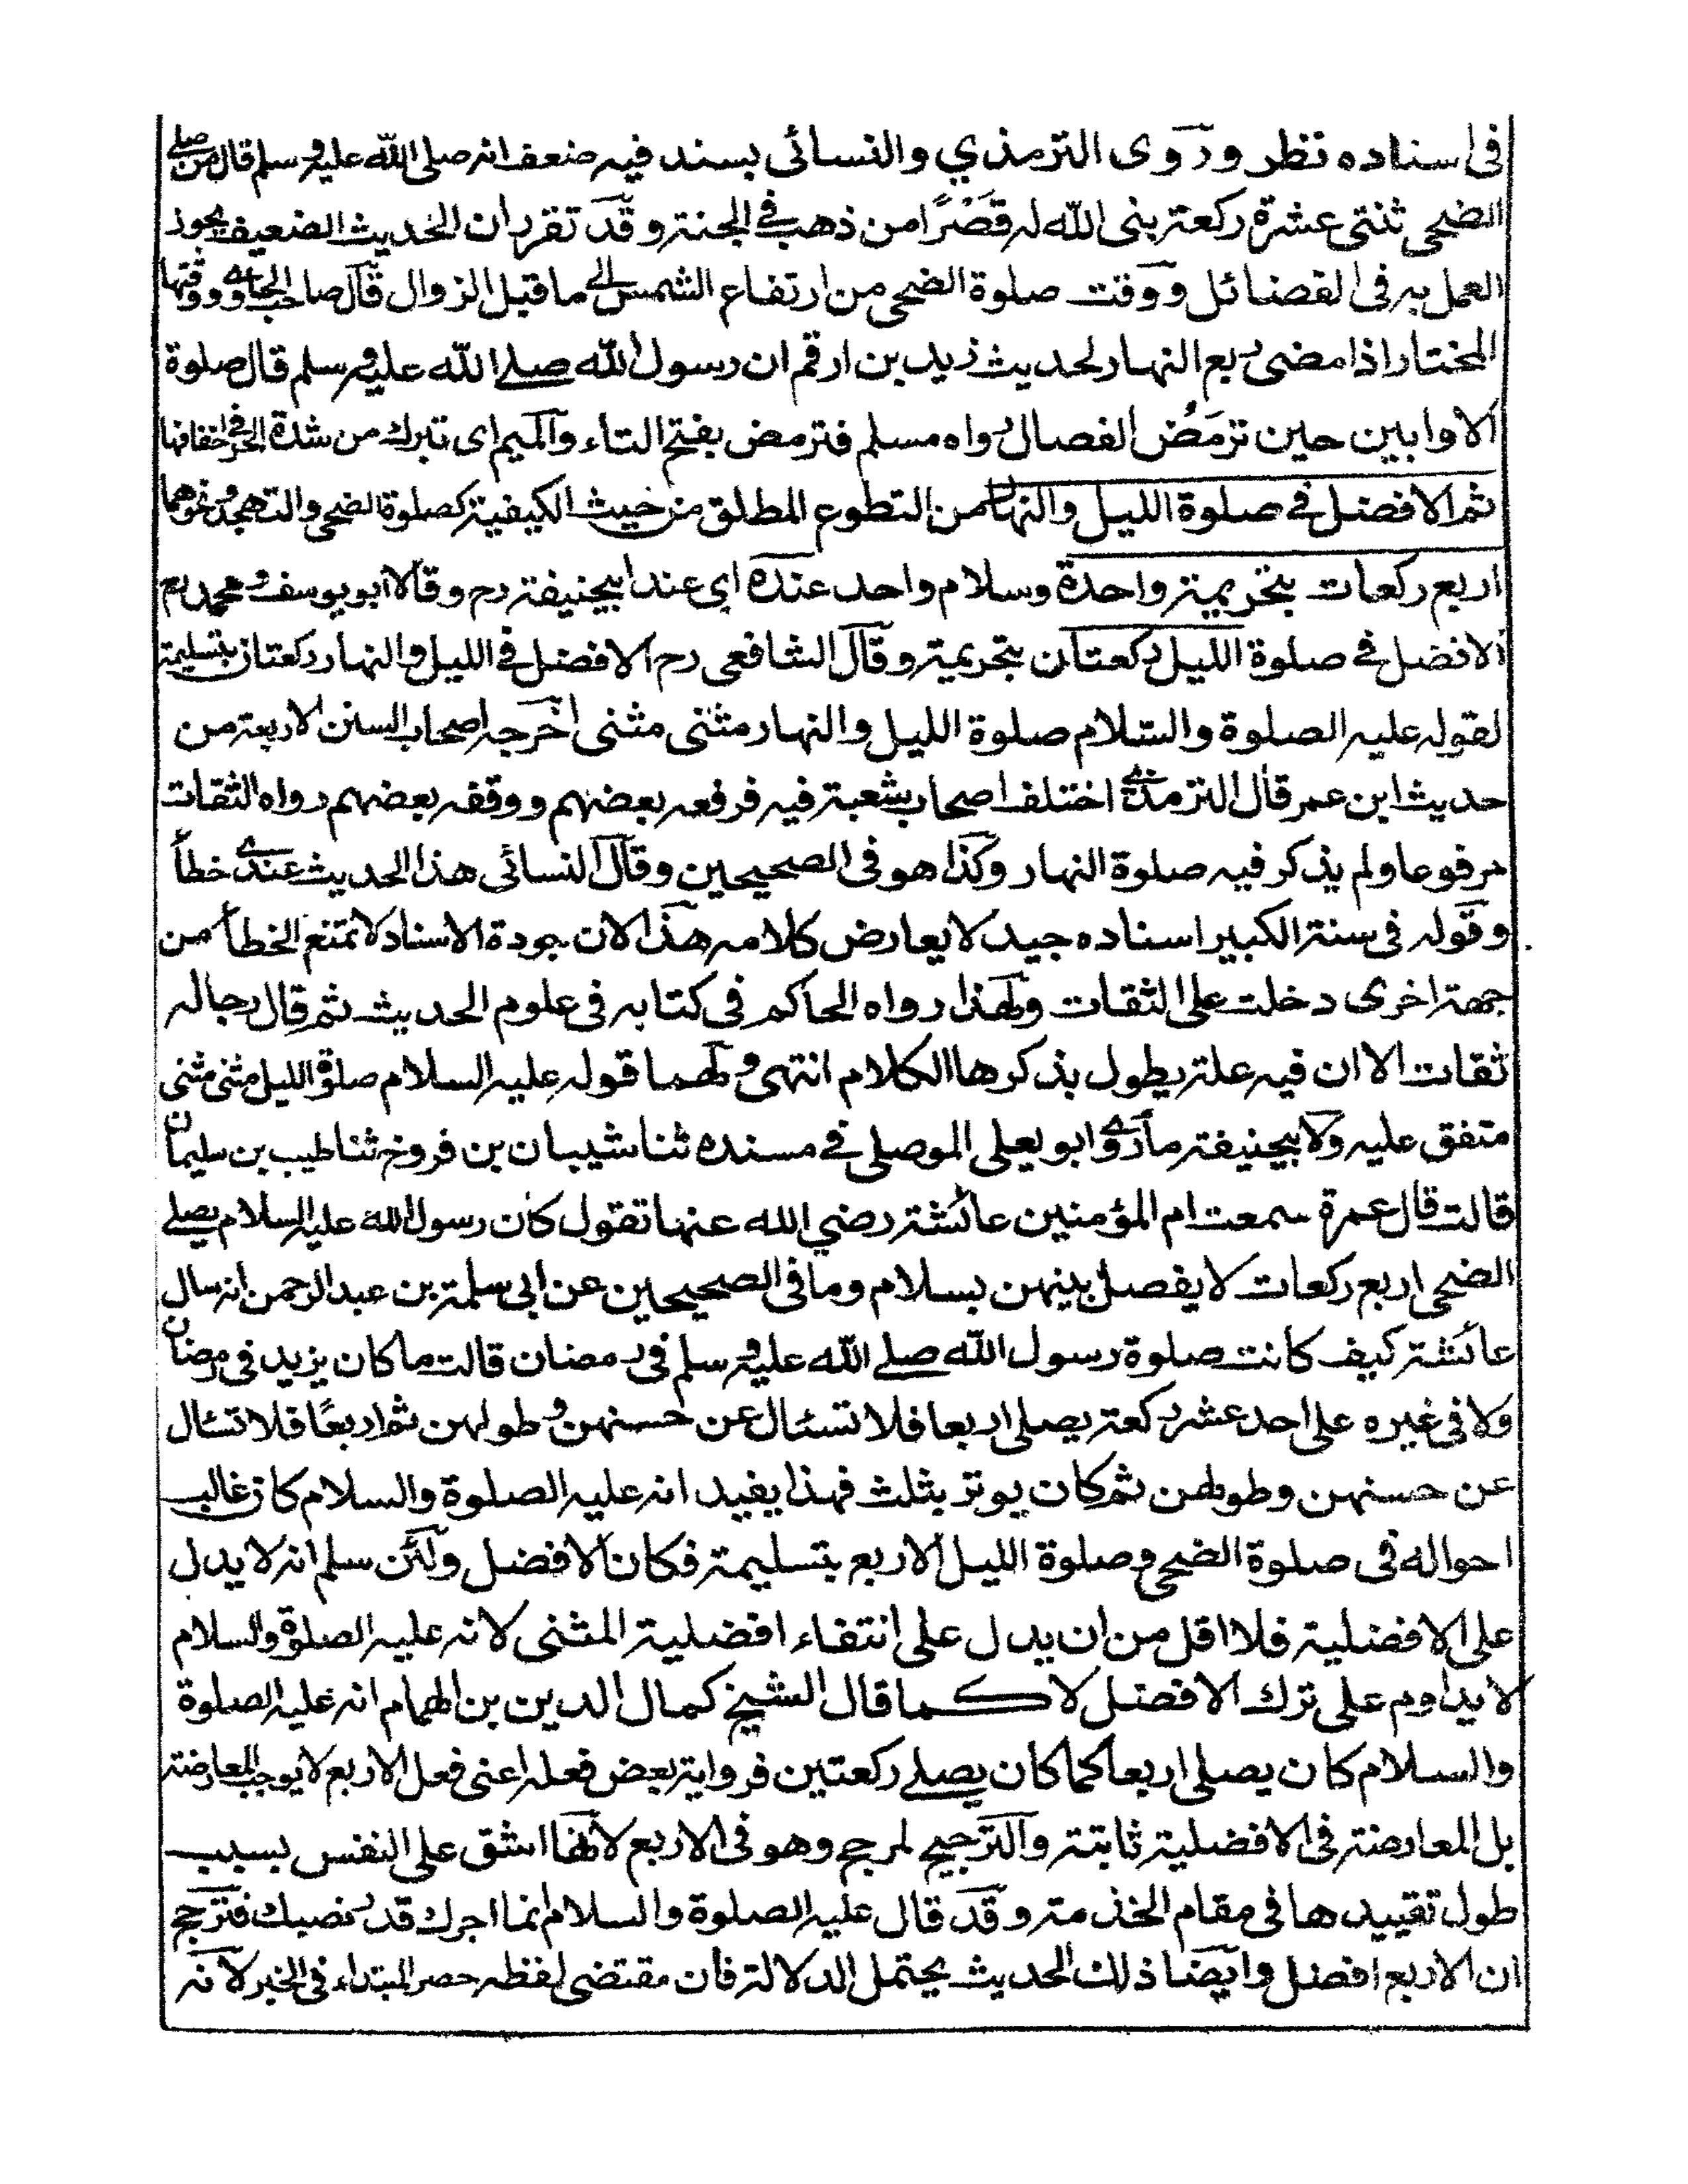 فى اسناده نظر وروى الترمذي والنسائى بسند فيه ضعف انه صلى الله عليه وسلم قال من صلى
الضحى ثنتى عشرة ركعة بنى الله له قصرًا من ذهب فى الجنة وقد تقرر ان الحديث الضعيف يجوز
العمل به فى الفضائل ووقت صلوة الضحى من ارتفاع الشمس الى ما قبل الزوال قال صاحب الحاوى ووقتها
المختار اذا مضى ربع النهار لحديث زيد بن ارقم ان رسول الله صلى الله عليه وسلم قال صلوة
الاوابين حين ترمَضُ الفصال رواه مسلم فترمض بفتح التاء والميم اى تبرك من شدة الحر فى اخفافها
ثم الافضل فى صلوة الليل والنهار من التطوع المطلق من حيث الكيفية كصلوة الضحى والتهجد ونحوهما
اربع ركعات بتحريمة واحدة وسلام واحد عنده اى عند ابيحنيفة رح وقالا ابو يوسف ومحمد رح
الافضل فى صلوة الليل ركعتان بتحريمة وقال الشافعى رح الافضل فى الليل والنهار ركعتان بتسليمة
لقوله عليه الصلوة والسّلام صلوة الليل والنهار مثنى مثنى اخرجه اصحاب السنن الاربعة من
حديث ابن عمر قال الترمذى اختلف اصحاب شعبة فيه فرفعه بعضهم ووقفه بعضهم رواه الثقات
مرفوعا ولم يذكر فيه صلوة النهار وكذا هو فى الصحيحين وقال النسائى هذا الحديث عندى خطأ
وقوله فى سننه الكبير اسناده جيد لا يعارض كلامه هذا لان جودة الاسناد لا تمتنع الخطأ من
جهة اخرى دخلت على الثقات ولهذا رواه الحاكم فى كتابه فى علوم الحديث ثم قال رجاله
ثقات الا ان فيه علة يطول بذكرها الكلام انتهى ولهما قوله عليه السلام صلوة الليل مثنى مثنى
متفق عليه ولابيحنيفة ما روى ابو يعلى الموصلى فى مسنده ثنا شيبان بن فروخ ثنا طيب بن سليمان
قالت قال عمرة سمعت ام المؤمنين عائشة رضي الله عنها تقول كان رسول الله عليه السلام يصلى
الضحى اربع ركعات لا يفصل بينهن بسلام وما فى الصحيحين عن ابى سلمة بن عبد الرحمن انه سال
عائشة كيف كانت صلوة رسول الله صلى الله عليه وسلم فى رمضان قالت ما كان يزيد فى رمضان
ولا فى غيره على احد عشر ركعة يصلى اربعا فلا تسئال عن حسنهن وطولهن ثم اربعًا فلا تسئال
عن حسنهن وطولهن ثم كان يوتر بثلث فهذا يفيد انه عليه الصلوة والسلام كان غالب
احواله فى صلوة الضحى وصلوة الليل الاربع بتسليمة فكان الافضل ولئن سلم انه لا يدل
على الافضلية فلا اقل من ان يدل على انتفاء افضلية المثنى لانه عليه الصلوة والسلام
لا يداوم على ترك الافضل لا كما قال الشيخ كمال الدين بن الهمام انه عليه الصلوة
والسلام كان يصلى اربعا كما كان يصلى ركعتين فرواية بعض فعله اعنى فعل الاربع لا يوجب المعارضة
بل المعارضة فى الافضلية ثابتة والترجيح لمرجح وهو فى الاربع لانها اشق على النفس بسبب
طول تقييدها فى مقام الخذمة وقد قال عليه الصلوة والسلام انما اجرك قدر نصبك فترجح
ان الاربع افضل وايضا ذلك الحديث يحتمل الدلالة فان مقتضى لفظه حصر المبتداء فى الخبر لانه